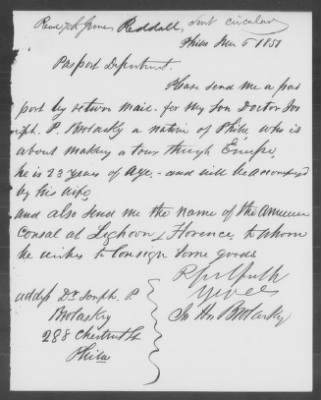 Reddall, sent circular
Phila 5 1851
Pasport Department.
Please send me a pas
port by return mail. for My Son Doctor Jos
eph. P. Brolasky a native of Phila who is
about making a tour through Europe,
he is 23 years of Age. - and will be accompanied
by his wife
and also send me the name of the American
Consul at Leghorn & Florence, to whom
he wishes to Consign Some goods
Respectfully
Yours
address Dr Joseph. P
Brolasky
288 Chestnut St
Phila
Brolasky